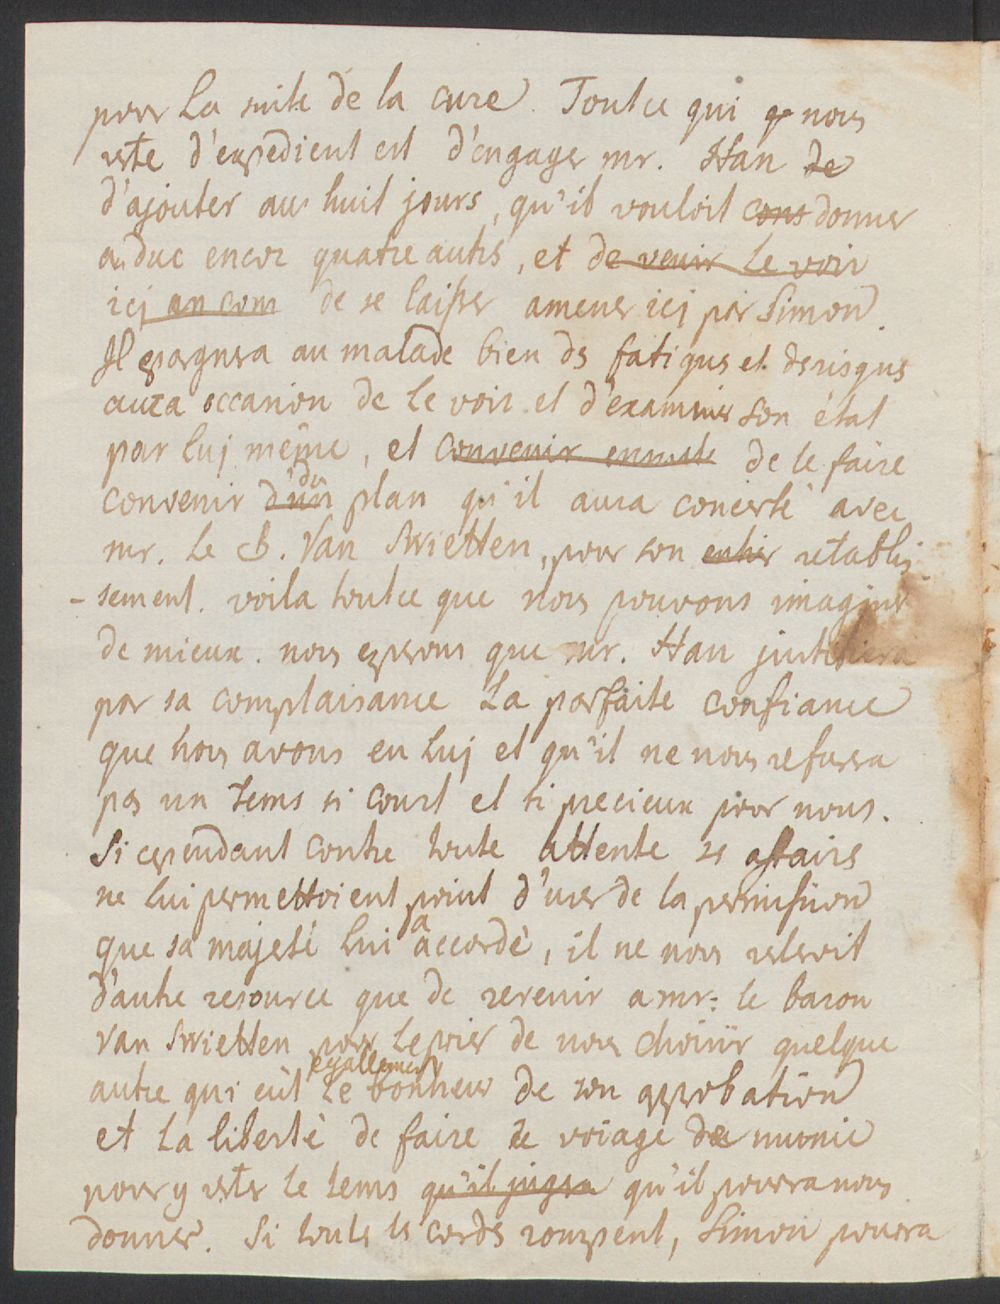 pour La suite de la cure. Toutce qui ~~qe~~ nous
reste d'expedient est d'engager mr. Han ~~de~~
d'ajouter aux huit jours, qu'il vouloit ~~cons~~ donner
au duc encor quatre autrs, et ~~de venir Le voir~~
icj ~~an com~~ de se laisser amener icj par Simon.
Jl epargnera au malade bien ds fatigus et ds risqus
aura occasion de Le voir et d'examiner son état
par Luj même, et ~~convenir ensuite~~ de le faire
convenir ~~d'un~~ du plan qu'il aura concerté avec
mr. Le B. Van Swietten, pour son ~~entier~~ retablis
-sement. voila toutce que nous pouvons imaginer
de mieux. nous esperons que mr. Han justifiera
par sa complaisance La parfaite confiance
que nous avons en Luj et qu'il ne nous refusera
pas un tems si court et si precieux pour nous.
Si cependant contre toute attente ses affairs
ne Lui permettoient point d'user de la permission
que sa majesté Lui a accordé, il ne nous resteroit
d'autre resource que de revenir a mr. le baron
Van Swietten pour Le prier de nous choisir quelque
autre qui eût egallement Le bonheur de son approbation
et La liberté de faire le voiage de munic
pour y rester Le tems ~~qu'il jugera~~ qu'il pourra nous
donner. Si touts ls cordes rompent, Simon pourra